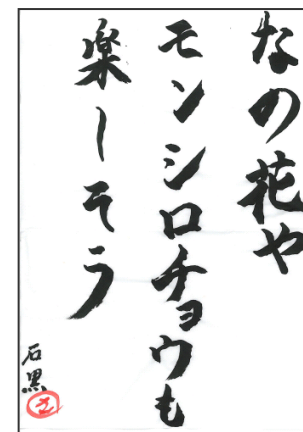 なの花や
モンシロチョウも
楽しそう
石黒